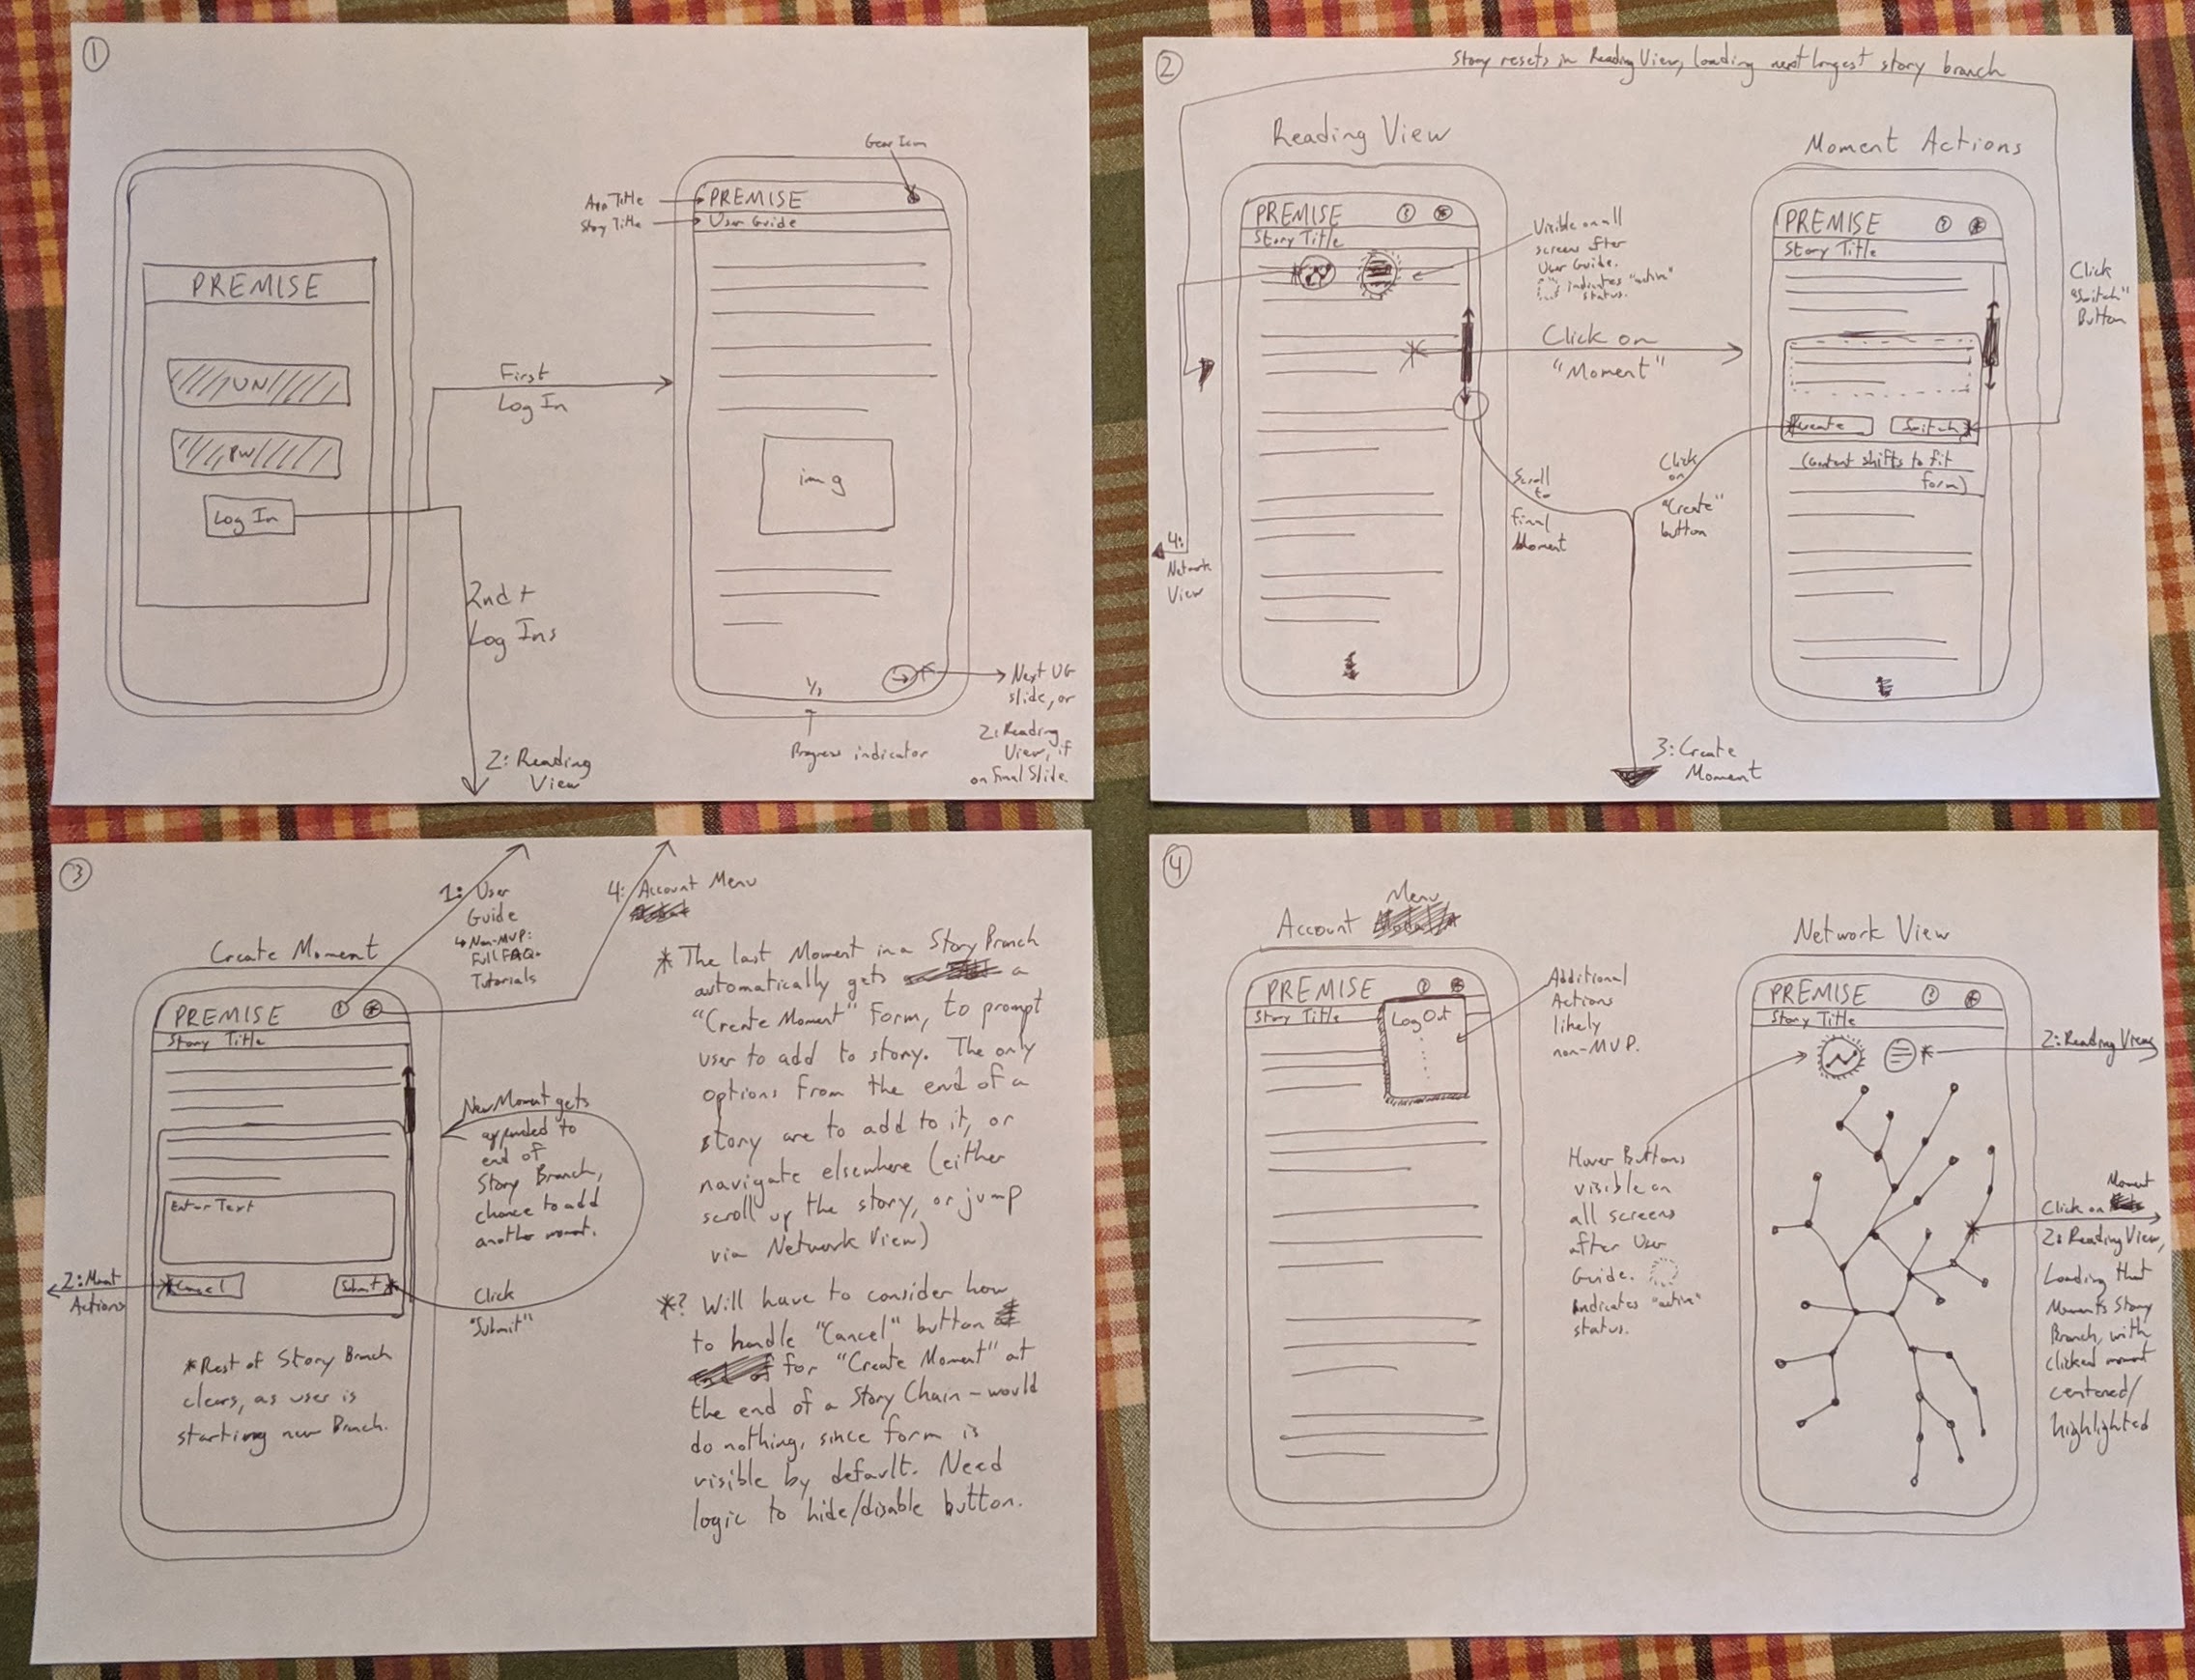 1
PREMISE
UN
PW
Log In
First
Log In
2nd +
Log Ins
2: Reading
View
Gear Icon
App Title
Story Title
PREMISE
User Guide
img
1/3
Progress indicator
Next UG
slide, or
2: Reading
View, if
on Final Slide
2
Story resets in Reading View, loading next longest story branch
Reading View
PREMISE
?
Story Title
Visible on all
screens after
User Guide.
indicates "active"
status.
Click on
"Moment"
Scroll
to
final
Moment
4:
Network
View
Moment Actions
PREMISE
?
Story Title
Create
Switch
(Content shifts to fit
form)
Click
on
"Create"
button
Click
"Switch"
Button
3: Create
Moment
3
Create Moment
PREMISE
?
Story Title
Enter Text
Cancel
Submit
*Rest of Story Branch
clears, as user is
starting new Branch.
2: Moment
Actions
1: User
Guide
↳ Non-MVP:
Full FAQ.
Tutorials
4: Account Menu
New Moment gets
appended to
end of
Story Branch,
chance to add
another moment.
Click
"Submit"
* The last Moment in a Story Branch
automatically gets a
"Create Moment" Form, to prompt
user to add to story. The only
options from the end of a
story are to add to it, or
navigate elsewhere (either
scroll up the story, or jump
via Network View)
*? Will have to consider how
to handle "Cancel" button
for "Create Moment" at
the end of a Story Chain – would
do nothing, since form is
visible by default. Need
logic to hide/disable button.
4
Account Menu
PREMISE
?
Story Title
Log Out
Additional
Actions
likely
non-MVP.
Hover Buttons
visible on
all screens
after User
Guide.
indicates "active"
status.
Network View
PREMISE
?
Story Title
2: Reading View
Click on Moment
2: Reading View,
Loading that
Moments Story
Branch, with
clicked moment
centered/
highlighted